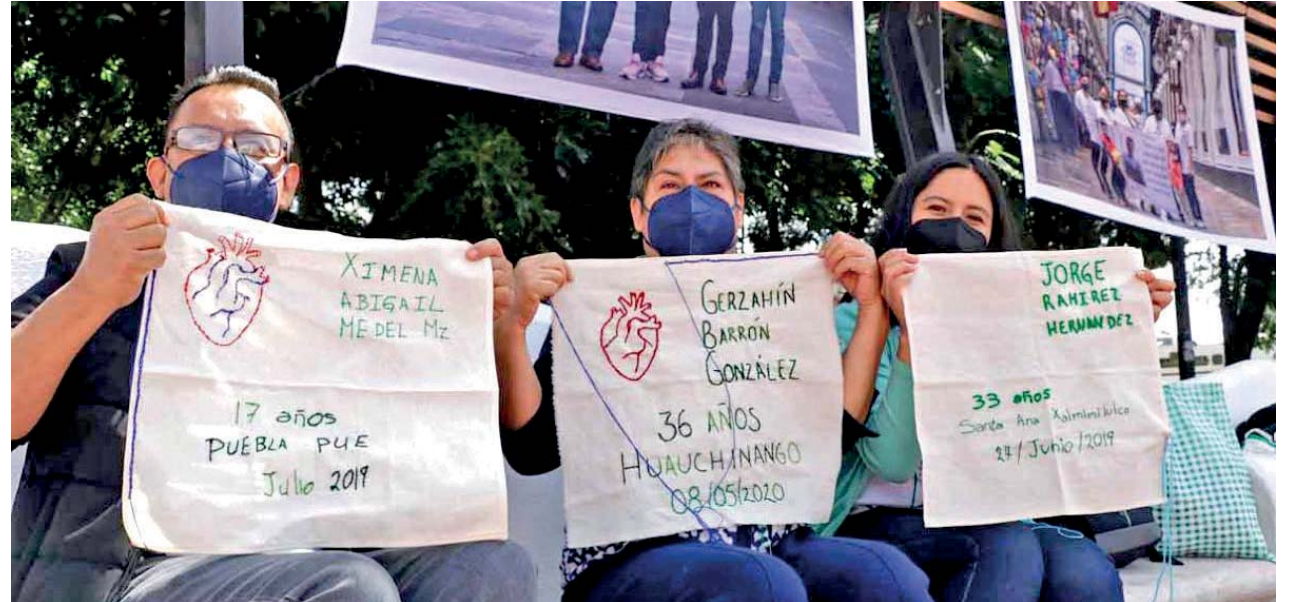 XIMENA
ABIGAIL
MEDEL Mz
17 años
PUEBLA PUE
Julio 2019
GERZAHÍN
BARRÓN
GONZÁLEZ
36 AÑOS
HUAUCHINANGO
08/05/2020
JORGE
RAMIREZ
HERNANDEZ
33 años
Santa Ana Xalmimilulco
27/Junio/2019